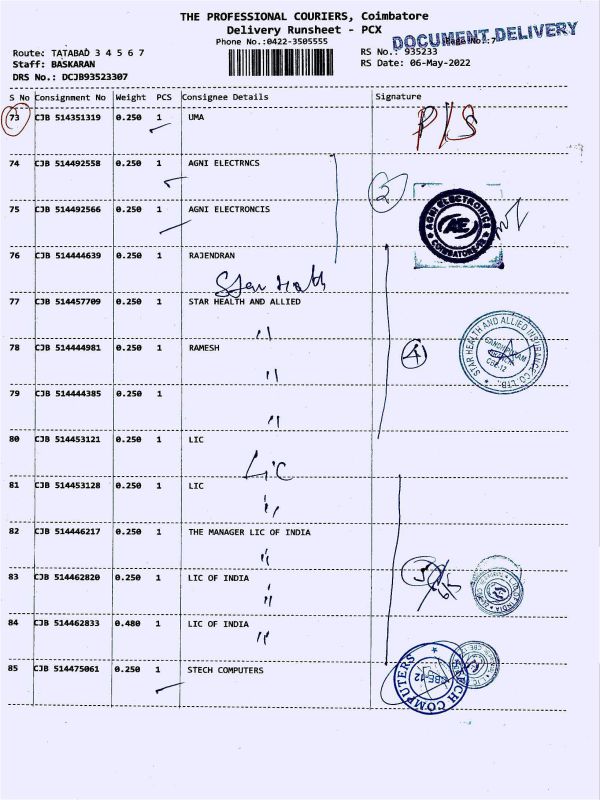 THE PROFESSIONAL COURIERS, Coimbatore
Delivery Runsheet - PCX
Phone No.:0422-3505555
DOCUMENT DELIVERY
Route: TATABAD 3 4 5 6 7
RS No.: 935233
Staff: BASKARAN
RS Date: 06-May-2022
DRS No.: DCJB93523307
S No Consignment No Weight PCS Consignee Details Signature
73 CJB 514351319 0.250 1 UMA
P/S
74 CJB 514492558 0.250 1 AGNI ELECTRNCS
2
AGNI ELECTRONICS
AE
COIMBATORE-12
75 CJB 514492566 0.250 1 AGNI ELECTRONCIS
76 CJB 514444639 0.250 1 RAJENDRAN
Star Health
77 CJB 514457709 0.250 1 STAR HEALTH AND ALLIED
"
STAR HEALTH AND ALLIED INSURANCE CO LTD.
GANDHIPURAM
BRANCH
CBE-12
4
78 CJB 514444981 0.250 1 RAMESH
"
79 CJB 514444385 0.250 1
"
80 CJB 514453121 0.250 1 LIC
LIC
81 CJB 514453128 0.250 1 LIC
"
82 CJB 514446217 0.250 1 THE MANAGER LIC OF INDIA
"
83 CJB 514462820 0.250 1 LIC OF INDIA
"
84 CJB 514462833 0.480 1 LIC OF INDIA
"
85 CJB 514475061 0.250 1 STECH COMPUTERS
STECH COMPUTERS
CBE-12